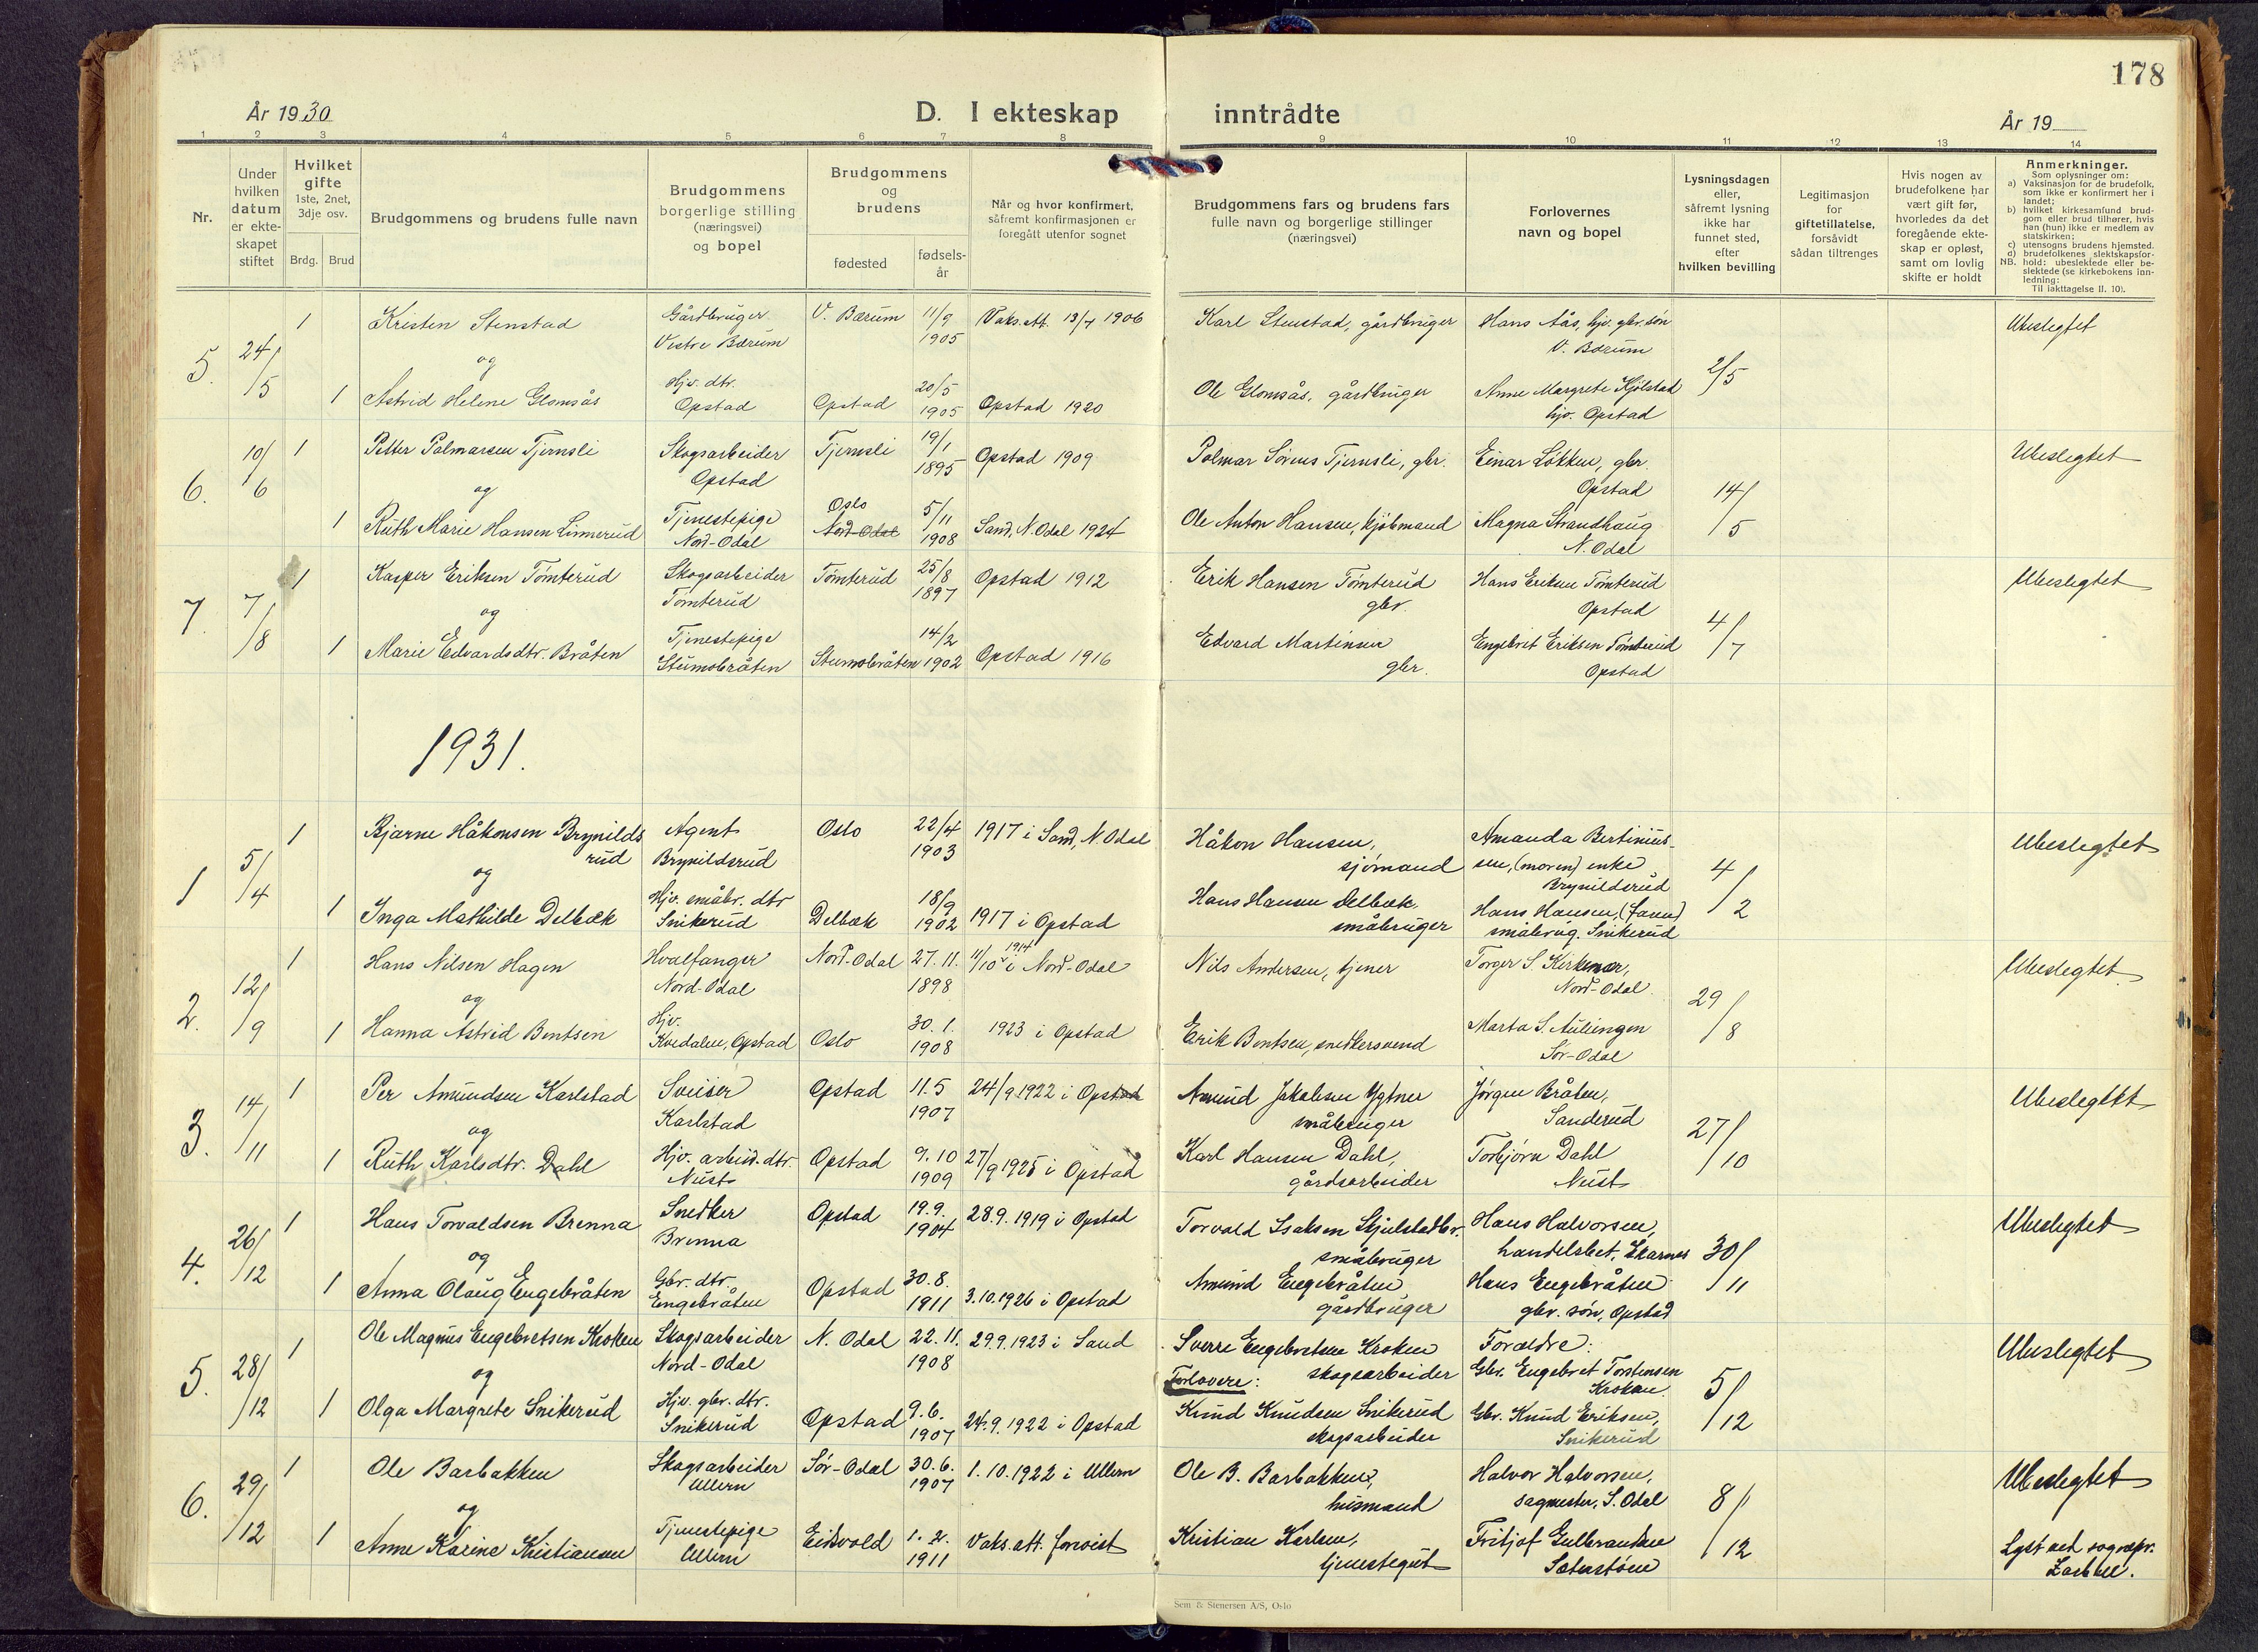 178
År 1930
D. I ekteskap inntrådte
År 19
1 2 3 4 5 6 7 8 9 10 11 12 13 14
Nr.
Under
hvilken
datum
er ekte-
skapet
stiftet
Hvilket
gifte
1ste, 2net,
3dje osv.
Brdg. Brud
Brudgommens og brudens fulle navn
Brudgommens
borgerlige stilling
(næringsvei)
og bopel
Brudgommens
og
brudens
fødested
fødsels-
år
Når og hvor konfirmert,
såfremt konfirmasjonen er
foregått utenfor sognet
Brudgommens fars og brudens fars
fulle navn og borgerlige stillinger
(næringsvei)
Forlovernes
navn og bopel
Lysningsdagen
eller,
såfremt lysning
ikke har
funnet sted,
efter
hvilken bevilling
Legitimasjon
for
giftetillatelse,
forsåvidt
sådan tiltrenges
Hvis nogen av
brudefolkene har
vært gift før,
hvorledes da det
foregående ekte-
skap er opløst,
samt om lovlig
skifte er holdt
Anmerkninger.
Som oplysninger om:
a) Vaksinasjon for de brudefolk,
som ikke er konfirmert her i
landet;
b) hvilket kirkesamfund brud-
gom eller brud tilhører, hvis
han (hun) ikke er medlem av
statskirken;
c) utensogns brudens hjemsted.
d) brudefolkenes slektskapsfor-
NB. hold: ubeslektede eller be-
slektede (se kirkebokens inn-
ledning:
Til iakttagelse II. 10).
5. 24/5 1 Kristen Stenstad Gårdbruger V. Bærum 11/9 Vaks. att. 13/7 1906 Karl Stenstad, gårdbruger Hans Aås, hjv. gbr. søn 2/5 Ubeslegtet
Vestre Bærum 1905 V. Bærum
og
1 Astrid Helene Glomsås Hjv. dtr. Opstad 20/5 Opstad 1920 Ole Glomsås, gårdbruger Anne Margrete Hjølstad
Opstad 1905 hjv. Opstad
6. 10/6 1 Petter Palmarsen Tjernsli Skogsarbeider Tjernsli 19/1 Opstad 1909 Palmar Sørens Tjernsli, gbr. Einar Løkken, gbr. 14/5 Ubeslegtet
Opstad 1895 Opstad
og
1 Ruth Marie Hansen Linnerud Tjenestepige Oslo 5/11 Sand, N. Odal 1924 Ole Anton Hansen, kjøbmand Magna Strandhaug
Nord-Odal Nord-Odal 1908 N. Odal
7. 7/8 1 Kasper Eriksen Tømterud Skogsarbeider Tømterud 25/8 Opstad 1912 Erik Hansen Tømterud Hans Eriksen Tømterud 4/7 Ubeslegtet
Tomterud 1897 gbr. Opstad
og
1 Marie Edvardsdtr. Bråten Tjenestepige Stumobråten 14/2 Opstad 1916 Edvard Martinsen Engebret Eriksen Tømterud
Stumobråten 1902 gbr. Opstad
1931.
1 5/4 1 Bjarne Håkonsen Brynilds Agent Oslo 22/4 1917 i Sand, N. Odal Håkon Hansen, Amanda Bertinius- 4/2 Ubeslegtet
rud Brynildsrud 1903 sjømand sen, (moren) enke
og Brynildsrud
1 Inga Mathilde Delbæk Hjv. småbr. dtr Delbæk 18/9 1917 i Opstad Hans Hansen Delbæk. Hans Hansen, (faren)
Snikerud 1902 småbruger småbrug. Snikerud
2. 12/9 1 Hans Nilsen Hagen Hvalfanger Nord-Odal 27.11. 11/10 1914 i Nord-Odal Nils Andersen, tjener Torger S. Kirkemor, 29/8 Ubeslegtet.
Nord-Odal 1898 Nord-Odal.
og
1 Hanna Astrid Bentsen Hjv. Oslo 30.1. 1923 i Opstad Erik Bentsen, snedkersvend Marta S. Auliengen
Kvedalen, Opstad 1908 Sør-Odal
3. 14/11 1 Per Amundsen Karlstad Sveiser Opstad 11.5 24/9 1922 i Opstad Amund Jakobsen Ygtner Jørgen Bråten, 27/10 Ubeslegtet
Karlstad 1907 småbruger Sanderud
og
1 Ruth Karlsdtr. Dahl Hjv. arbeid. dtr. Opstad 9.10 27/9 1925 i Opstad Karl Hansen Dahl, Torbjørn Dahl
Neist 1909 gårdsarbeider Neist
4. 26/12 1 Hans Torvaldsen Brenna Snedker Opstad 19.9. 28.9.1919 i Opstad Torvald Isaksen Skjulstadbr. Hans Halvorsen, 30/11 Ubeslegtet
Brenna 1904 småbruger handelsbet. Skarnes
og
1 Anna Olaug Engebråten Gbr. dtr. Opstad 30.8. 3.10.1926 i Opstad Amund Engebråten Hans Engebråten
Engebråten 1911 gårdbruger gbr. søn, Opstad
5. 28/12 1 Ole Magnus Engebretsen Kroken Skogsarbeider N. Odal 22.11. 29.9.1923 i Sand Sverre Engebretsen Kroken Forældre: 5/12 Ubeslegtet
Nord-Odal 1908 skogsarbeider Gbr. Engebret Torstensen
og Forlovere: Kroken.
1 Olga Margrete Snikerud Hjv. gbr. dtr. Opstad 9.6. 24.9.1922 i Opstad Knud Knudsen Snikerud Gbr. Knud Eriksen,
Snikerud 1907 skogsarbeider Snikerud
6. 29/12 1 Ole Barbakken Skogsarbeider Sør-Odal 30.6. 1.10.1922 i Ullern Ole B. Barbakken, Halvor Halvorsen, 8/12 Ubeslegtet
Ullern 1907 husmand sagmester, S. Odal
og
1 Anne Karine Kristiansen Tjenestepige Eidsvold 1.2. Vaks. att. forevist Kristian Karlsen, Fritjof Gulbrandsen Lyst ved sognepr.
Ullern 1911 tjenestegut Sæterstøen
Sem & Stenersen A/S, Oslo